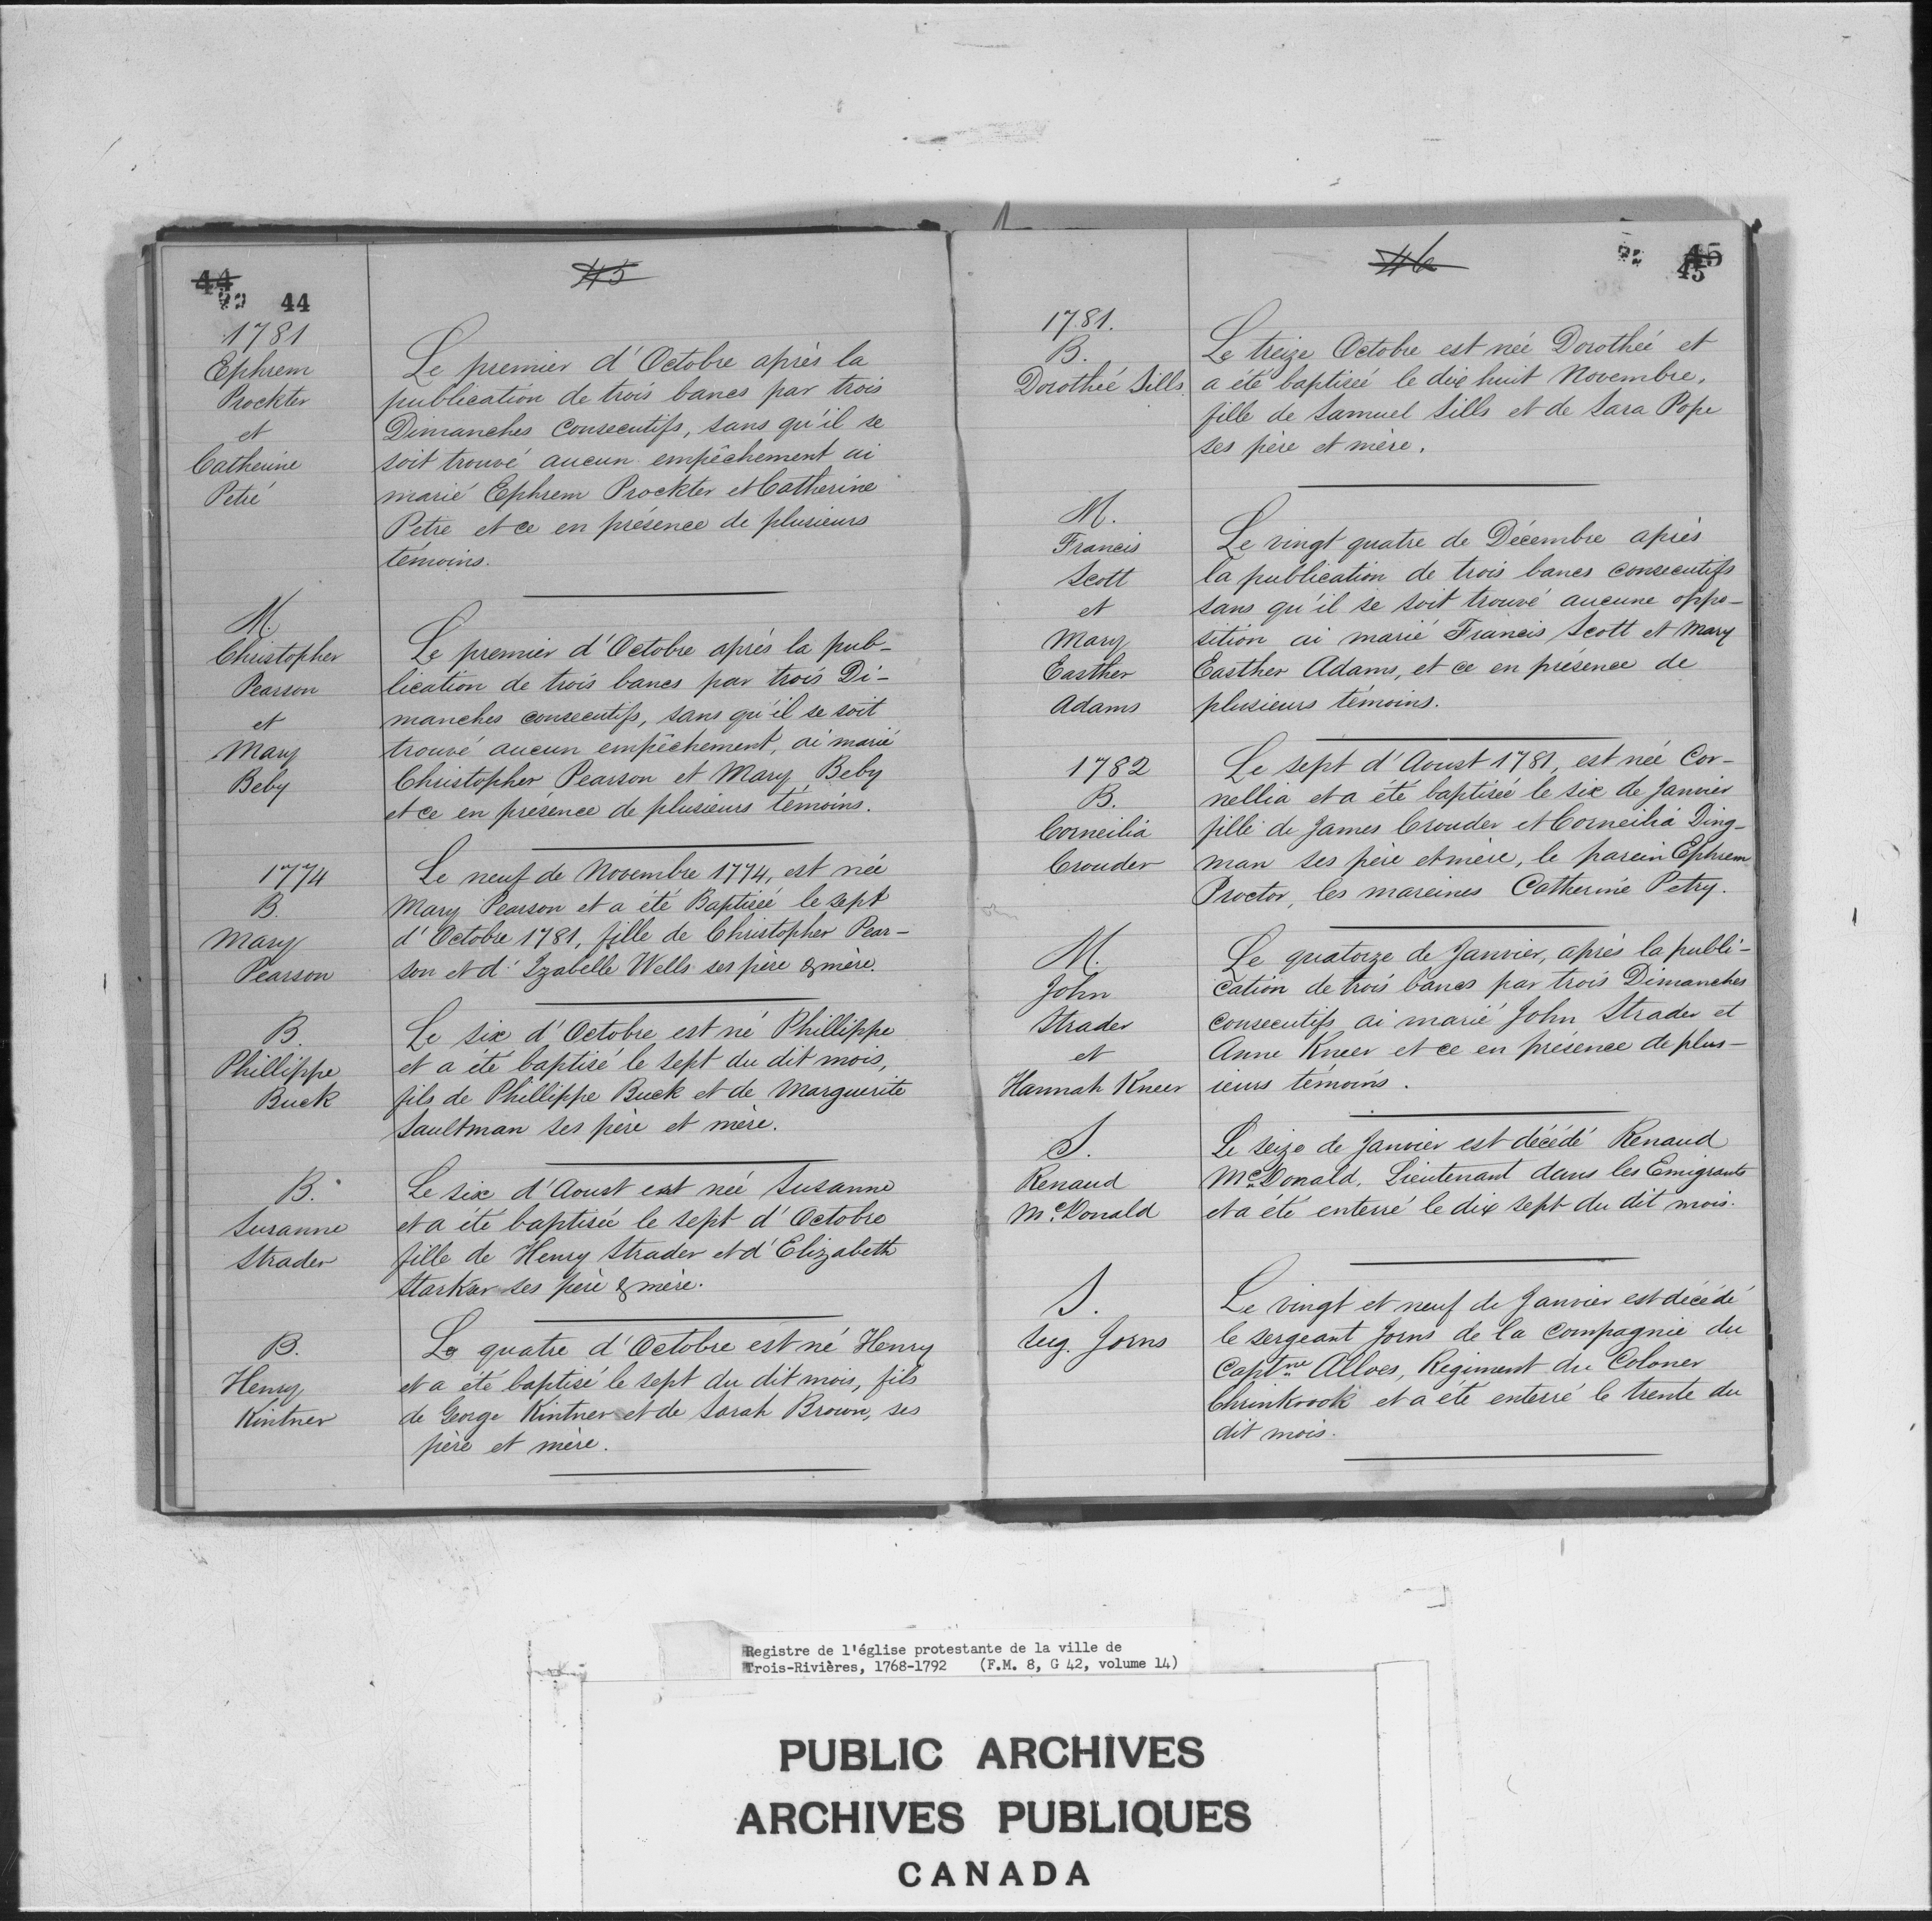 44
44
45
1781
Ephrem
Prockter
et
Catherine
Petré
Le premier d'Octobre après la
publication de trois bancs par trois
Dimanches consecutifs, sans qu'il se
soit trouvé aucun empêchement ai
marié Ephrem Prockter et Catherine
Petre et ce en présence de plusieurs
témoins.
M.
Christopher
Pearson
et
Mary
Beby
Le premier d'Octobre après la pub-
lication de trois bancs par trois Di-
manches consecutifs, sans qu'il se soit
trouvé aucun empêchement, ai marié
Christopher Pearson et Mary Beby
et ce en présence de plusieurs témoins.
1774
B.
Mary
Pearson
Le neuf de Novembre 1774, est née
Mary Pearson et a été Baptisée le sept
d'Octobre 1781, fille de Christopher Pear-
son et d'Izabelle Wells ses père & mère.
B.
Phillippe
Buck
Le six d'Octobre est né Phillippe
et a été baptisé le sept du dit mois,
fils de Phillippe Buck et de Marguerite
Saultman ses père et mère.
B.
Susanne
Strader
Le six d'Aoust est née Susanne
et a été baptisée le sept d'Octobre
fille de Henry Strader et d'Elizabeth
Starkar ses père & mère.
B.
Henry
Kintner
Le quatre d'Octobre est né Henry
et a été baptisé le sept du dit mois, fils
de George Kintner et de Sarah Brown, ses
père et mère.
46
45
45
1781.
B.
Dorothée Sills
Le treize Octobre est née Dorothée et
a été baptisée le dix huit Novembre,
fille de Samuel Sills et de Sara Pope
ses père et mère.
M.
Francis
Scott
et
Mary
Easther
Adams
Le vingt quatre de Décembre après
la publication de trois bancs consecutifs
sans qu'il se soit trouvé aucune oppo-
sition ai marié Francis Scott et Mary
Easther Adams, et ce en présence de
plusieurs témoins.
1782
B.
Corneilia
Crouder
Le sept d'Aoust 1781, est née Cor-
nellia et a été baptisée le six de Janvier
fille de James Crouder et Corneilia Ding-
man ses père et mère, le parein Ephrem
Proctor, les mareines Catherine Petry.
M.
John
Strader
et
Hannah Kneer
Le quatorze de Janvier, après la publi-
cation de trois bancs par trois Dimanches
consecutifs ai marié John Strader et
Anne Kneer et ce en présence de plus-
ieurs témoins.
S.
Renaud
Mc.Donald
Le seize de Janvier est décédé Renaud
Mc.Donald, Lieutenant dans les Emigrants
et a été enterré le dix sept du dit mois.
S.
Seg. Jorns
Le vingt et neuf de Janvier est décédé
le sergeant Jorns de la compagnie du
Captne Alloes, Régiment du Coloner
Chrinkvook et a été enterré le trente du
dit mois.
Registre de l'église protestante de la ville de
Trois-Rivières, 1768-1792 (F.M. 8, G 42, volume 14)
PUBLIC ARCHIVES
ARCHIVES PUBLIQUES
CANADA